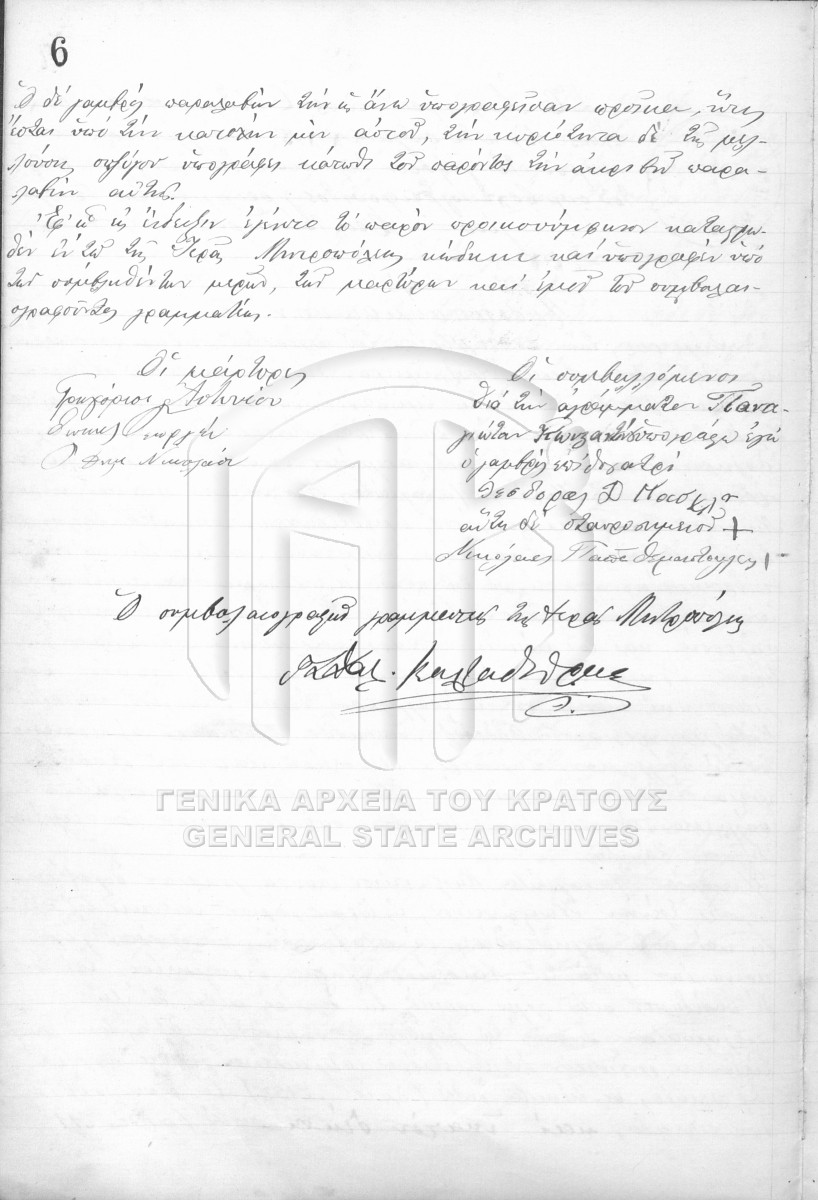 6
Ὁ δέ γαμβρός παραλαβών τήν ὡς ἄνω ὑπογραφεῖσαν προῖκα, ἥτις
ἔσται ὑπό τήν κατοχήν μέν αὐτοῦ, τήν κυριότητα δέ τῆς μελ-
λούσης συζύγου ὑπογράφει κάτωθι τοῦ παρόντος τήν ἀκριβῆ παρα-
λαβήν αὐτῆς.
Ἐφ' ᾧ εἰς ἔνδειξιν ἐγένετο τό παρόν προικοσύμφωνον καταχω-
θέν ἐν τῷ τῆς Ἱερᾶς Μητροπόλεως κώδικι καί ὑπογραφέν ὑπό
τῶν συμβληθέντων μερῶν, τῶν μαρτύρων καί ἐμοῦ τοῦ συμβολαι-
ογραφοῦντος γραμματέως.
Οἱ μάρτυρες
Γρηγόριος
Νικολάου
Οἱ συμβαλλόμενοι
διά τήν ἀγράμματον Πανα-
γιώταν ὑπογράφω ἐγώ
ὁ γαμβρός ἐπί θυγατρί
Θεόδορος Δ
αὕτη δέ σταυροσημειοῖ +
Νικόλαος Παπα
Ὁ συμβολαιογραφῶν γραμματεύς τῆς Ἱερᾶς Μητροπόλεως
ΓΕΝΙΚΑ ΑΡΧΕΙΑ ΤΟΥ ΚΡΑΤΟΥΣ
GENERAL STATE ARCHIVES